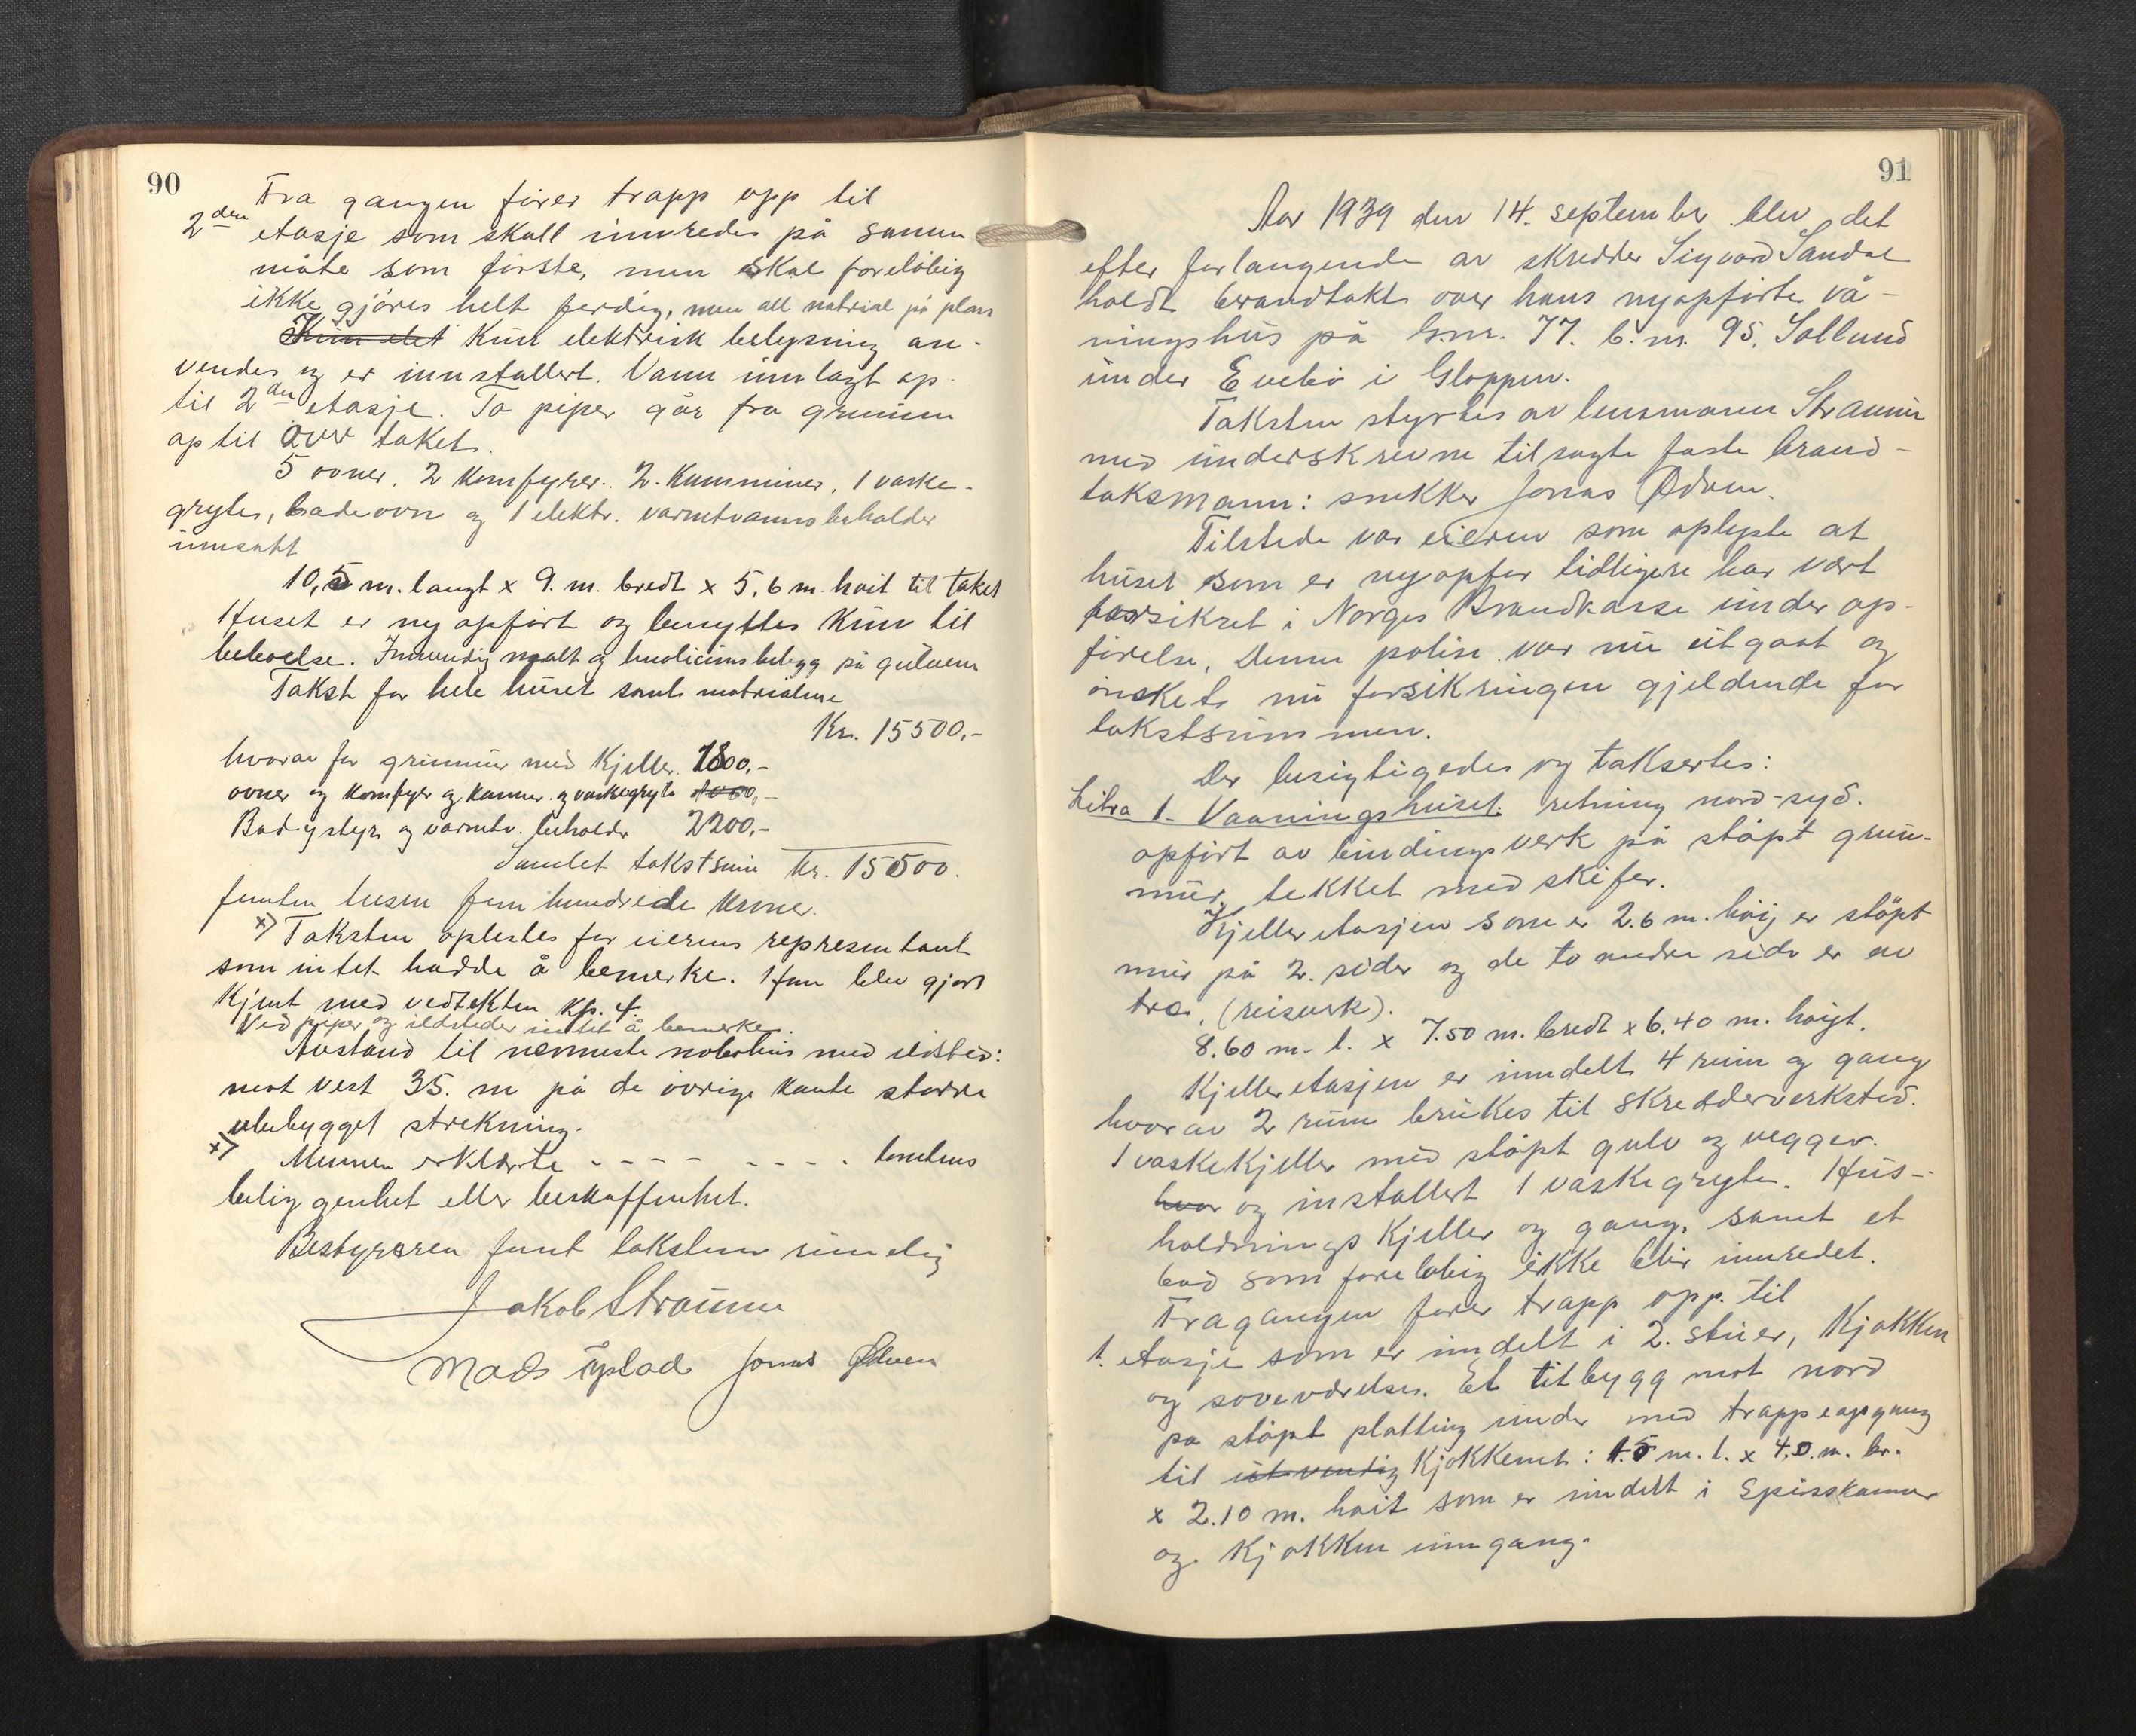 90
Fra gangen fører trapp opp til
2den etasje som skall innredes på samme
måte som første, men skal foreløbig
ikke gjøres helt ferdig, men all matrial på plass
Kun elet Kun elektrisk belysning an-
vendes og er innstallert. Vann innlagt op
til 2den etasje. To piper går fra grunnen
op til over taket.
5 ovner. 2 komfyrer. 2. Kamminer, 1 vaske-
gryte, badeovn og 1 elektr. varmtvannsbeholder
innsatt
10,5 m. langt x 9. m. bredt x 5,6 m. høit til taket
Huset er ny opført og benyttes kun til
beboelse. Innvendig malt og linoliumsbelegg på gulvene
Takst for hele huset samt matrialene
Kr. 15500,-
hvorav for grunnmur med Kjeller. 1800,-
ovner og komfyr og kaminer. og vaskegryte 1000,-
Badystyr og varmtv. beholder 2200,-
Samlet takstsum kr. 15500.
femten tusen fem hundrede kroner.
x) Taksten oplestes for eierens representant
som intet hadde å bemerke. Han blev gjort
Kjent med vedtekten kp. 4.
Ved piper og ildsteder intet å bemerke.
Avstand til nærmeste nabohus med ildsted:
mot vest 35. m på de øvrige kante større
ubebygget strekning.
x) Mennene erklærte - - - - - - - - . tomtens
beliggenhet eller beskaffenhet.
Bestyreren funt taksten rimelig
Jakob Straume
Mads Apland Jonas Ødven
91
Aar 1939 den 14. september blev det
efter forlangende av skredder Sigvard Sandal
holdt brandtakt over hans nyopførte vå-
ningshus på G.nr. 77. b.nr. 95, Solland
under Evebø i Gloppen.
Taksten styrtes av lensmann Straume
med underskrevne tilsagte faste brand-
taksmann: snekker Jonas Ødven.
Tilstede var eieren som oplyste at
huset som er nyopfør tidligere har vært
forsikret i Norges Brandkasse under op-
førelse, Denne polise var nu utgaat og
ønsket nu forsikringen gjeldende for
takstsummen.
Der besigtigedes og taksertes:
Litra 1. Vaaningshuset. retning nord-syd.
opført av bindingsverk på støpt grun-
mur, tekket med skifer.
Kjelleretasjen som er 2.6 m. høj er støpt
mur på 2. sider og de to andre side er av
tre. (reisverk).
8.60 m. l. x 7.50 m. bredt x 6.40 m. høigt.
Kjelleretasjen er inndelt 4 rum og gang
hvorav 2 rum brukes til skredderverksted.
1 vaskekjeller med støpt gulv og vegger.
hvor og installert 1 vaskegryte. Hus-
holdnings Kjeller og gang. samt et
bad som foreløbig ikke blir innredet.
Fra gangen fører trapp opp. til
1. etasje som er inndelt i 2. stuer, Kjøkken
og soveværelse. Et tilbygg mot nord
på støpt platting under med trappeopgang
til utvendig Kjøkkenet: 1.5 m. l. x 4.0 m. br.
x 2.10 m. høit som er inndelt i Spisskammer
og Kjøkken inngang.